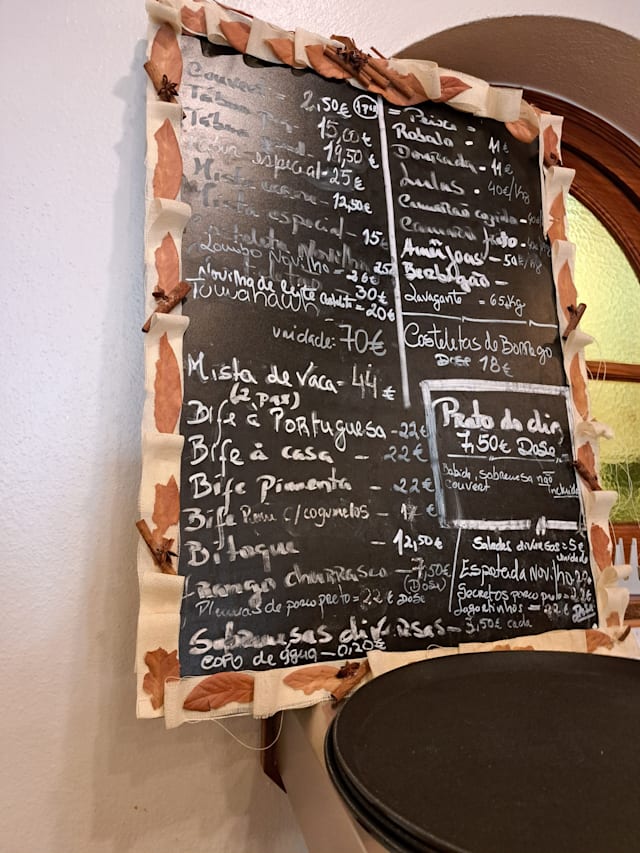 Couvert = 2,50€
Tábua 15,00€
Tábua 19,50€
especial - 25€
Mista - 12,50€
Mista especial - 15€
Costeleta Novilho 25€
Lombo Novilho = 26€
Novinho de leite = 30€
Tomahawk = 20€
unidade: 70€
Mista de vaca - 44€
(2 pax)
Bife à Portuguesa - 22€
Bife à casa - 22€
Bife Pimenta - 22€
Bife c/cogumelos -
Bitoque - 12,50€
Frango churrasco - 7,50€
(Dose)
Plumas de porco preto = 22€ Dose
Sobremesas diversas - 3,50€ cada
copo de água - 0,20€
= Peixe =
Robalo - 11€
Dourada - 11€
Lulas - 40€/Kg
Camarão cozido - 40€
Camarão frito -
Amêijoas - 50€/Kg
Berbigão -
Lavagante = 65€/kg
Costeletas de Borrego
Dose 18€
Prato do dia,
7,50€ Dose
Bebida, sobremesa não
couvert incluido
Saladas diversas = 5€
unidade
Espetada Novilho 22€
Secretos porco preto = 22€
Lagartinhos = 22€ Dose